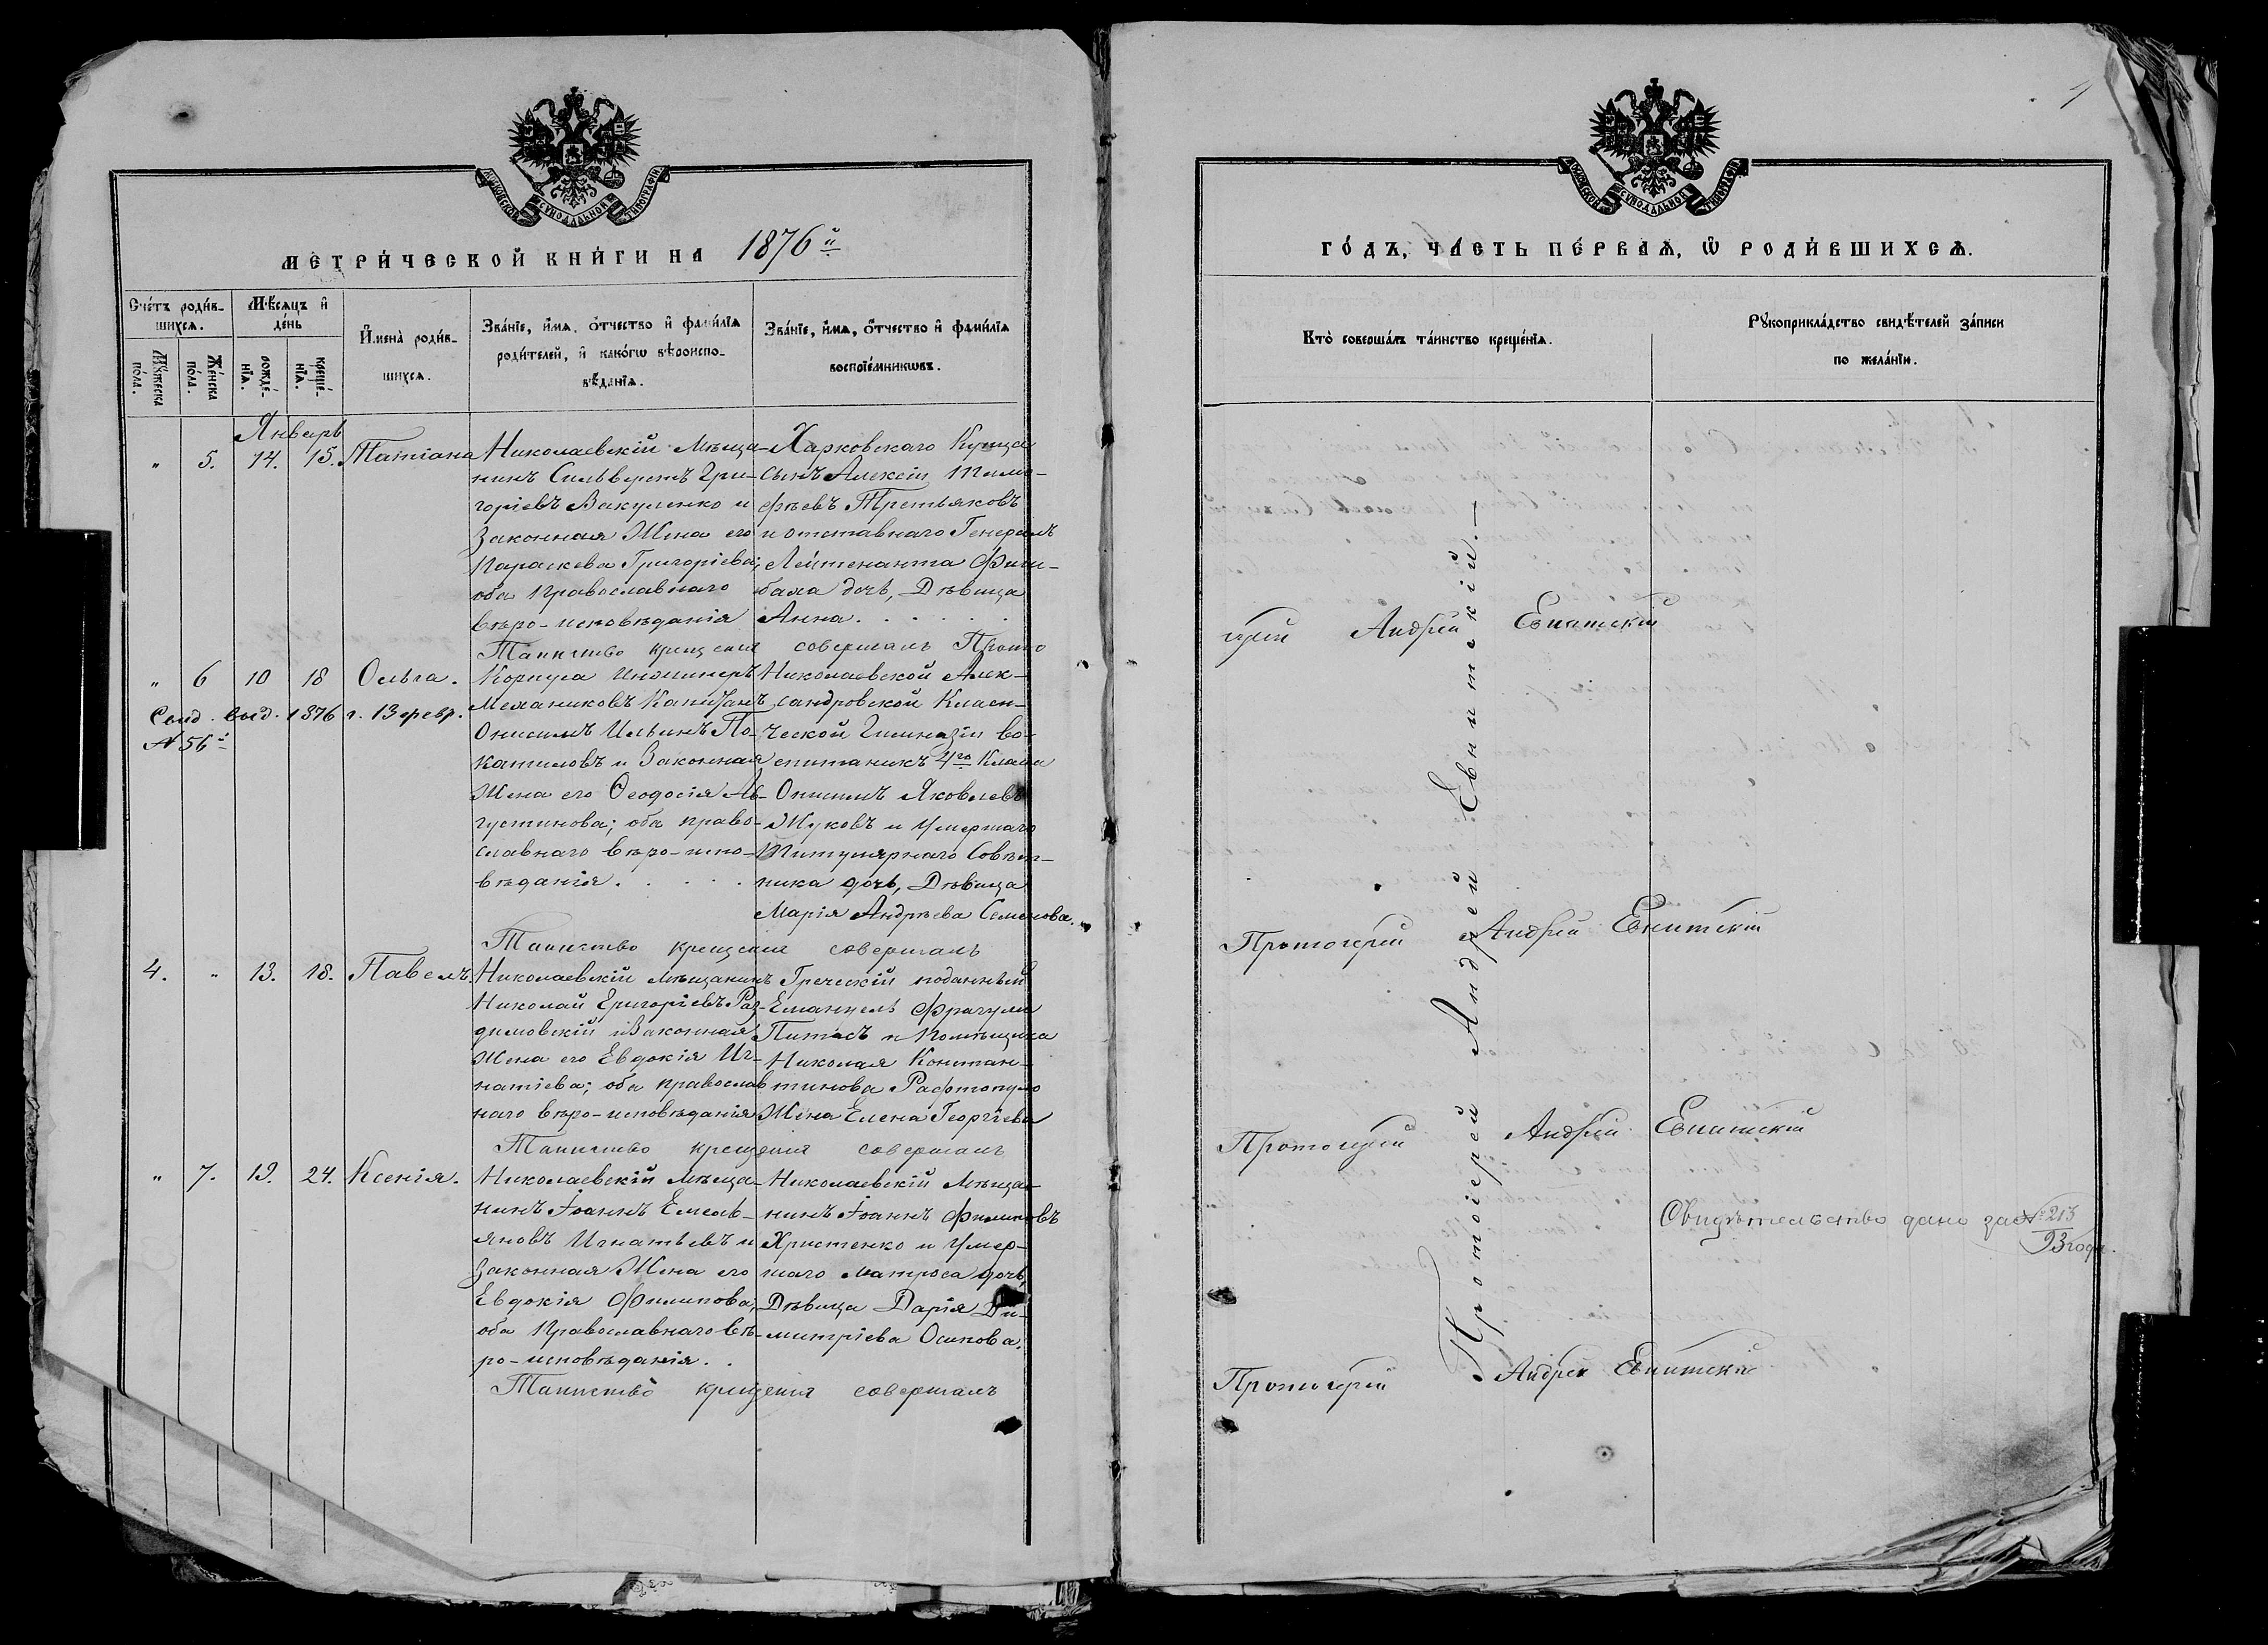 МОСКОВСКОЙ СѴНОДАЛЬНОЙ ТИПОГРАФІИ
МЕТРИ́ЧЕСКОЙ КНИ́ГИ НА 1876й
Сче́тъ роди́в-
шихсѧ.
Мѣ́сѧцъ и҆
де́нь
И҆мена̀ роди́в-
шихсѧ.
Зва́нїе, и҆́мѧ, ѻ҆́тчество и҆ фами́лїѧ
роди́телей, и҆ како́гѡ вѣроиспо-
вѣ́данїѧ.
Зва́нїе, и҆́мѧ, ѻ҆́тчество и҆ фами́лїѧ
воспрїе́мникѡвъ.
Мꙋ́жеска
по́ла.
Же́нска
по́ла.
рожде́-
нїѧ.
креще́-
нїѧ.
Январь
" 5. 14. 15. Татіана
Николаевскій Мѣща-
нинъ Сильверстъ Гри-
горіевъ Вакуленко и
Законная Жена его
Параскева Григоріева;
оба Православнаго
вѣро-исповѣданія
Харковскаго Купца
Сынъ Алексѣй Тимо-
фѣевъ Третьяковъ
и отставнаго Генералъ
Лейтенанта
дочь, Дѣвица
Анна. . . . . .
Таинство крещенія совершалъ Прото
" 6 10 18 Ольга.
Свид. выд. 1876 г. 13 февр.
№ 56й
Корпуса Инжинеръ
Механиковъ Капитанъ
Онисимъ Ильинъ По-
катиловъ и Законная
Жена его Ѳеодосія Ав-
густинова; оба право-
славнаго вѣро-испо-
вѣданія. . . . .
Николаевской Алек-
сандровской Класси-
ческой Гимназіи во-
спитаникъ 4го Класса
Онисимъ Яковлевъ
Жуковъ и Умершаго
Титулярнаго Совѣт-
ника дочь, Дѣвица
Марія Андрѣева Семенова.
Таинство крещенія совершалъ
4. " 13. 18. Павелъ.
Николаевскій Мѣщанинъ
Николай Григоріевъ Раз-
димовскій и Законная
Жена его Евдокія Иг-
натіева; оба православ
наго вѣро-исповѣданія
Греческій поданный
Емануель Фрагули
Питасъ и Помѣщика
Николая Констан-
тинова Рафтопуло
Жена Елена Георгіева
Таинство крещенія совершалъ
" 7. 19. 24. Ксенія.
Николаевскій Мѣща-
нинъ Іоаннъ Емель-
яновъ Игнатьевъ и
Законная Жена его
Евдокія Филипова;
оба Православнаго вѣ-
ро-исповѣданія. .
Николаевскій Мѣща-
нинъ Іоаннъ Филиповъ
Христенко и Умер-
шаго матроса дочь,
Дѣвица Дарія Ди-
митріева Осипова.
Таинство крещенія совершалъ
МОСКОВСКОЙ СѴНОДАЛЬНОЙ ТИПОГРАФІИ
ГО́ДЪ, ЧА́СТЬ ПЕ́РВАѦ, Ѽ РОДИ́ВШИХСѦ.
Кто̀ соверша́лъ та́инство креще́нїѧ.
Рꙋкоприкла́дство свидѣ́телей за́писи
по жела́нїи.
іерей Андрей Евнитскій
Протоіерей Андрей Евнитскій
Протоіерей Андрей Евнитскій
Свидѣтельство дано за № 213
93 года.
Протоіерей Андрей Евнитскій
Протоіерей Андрей Евнитскій.